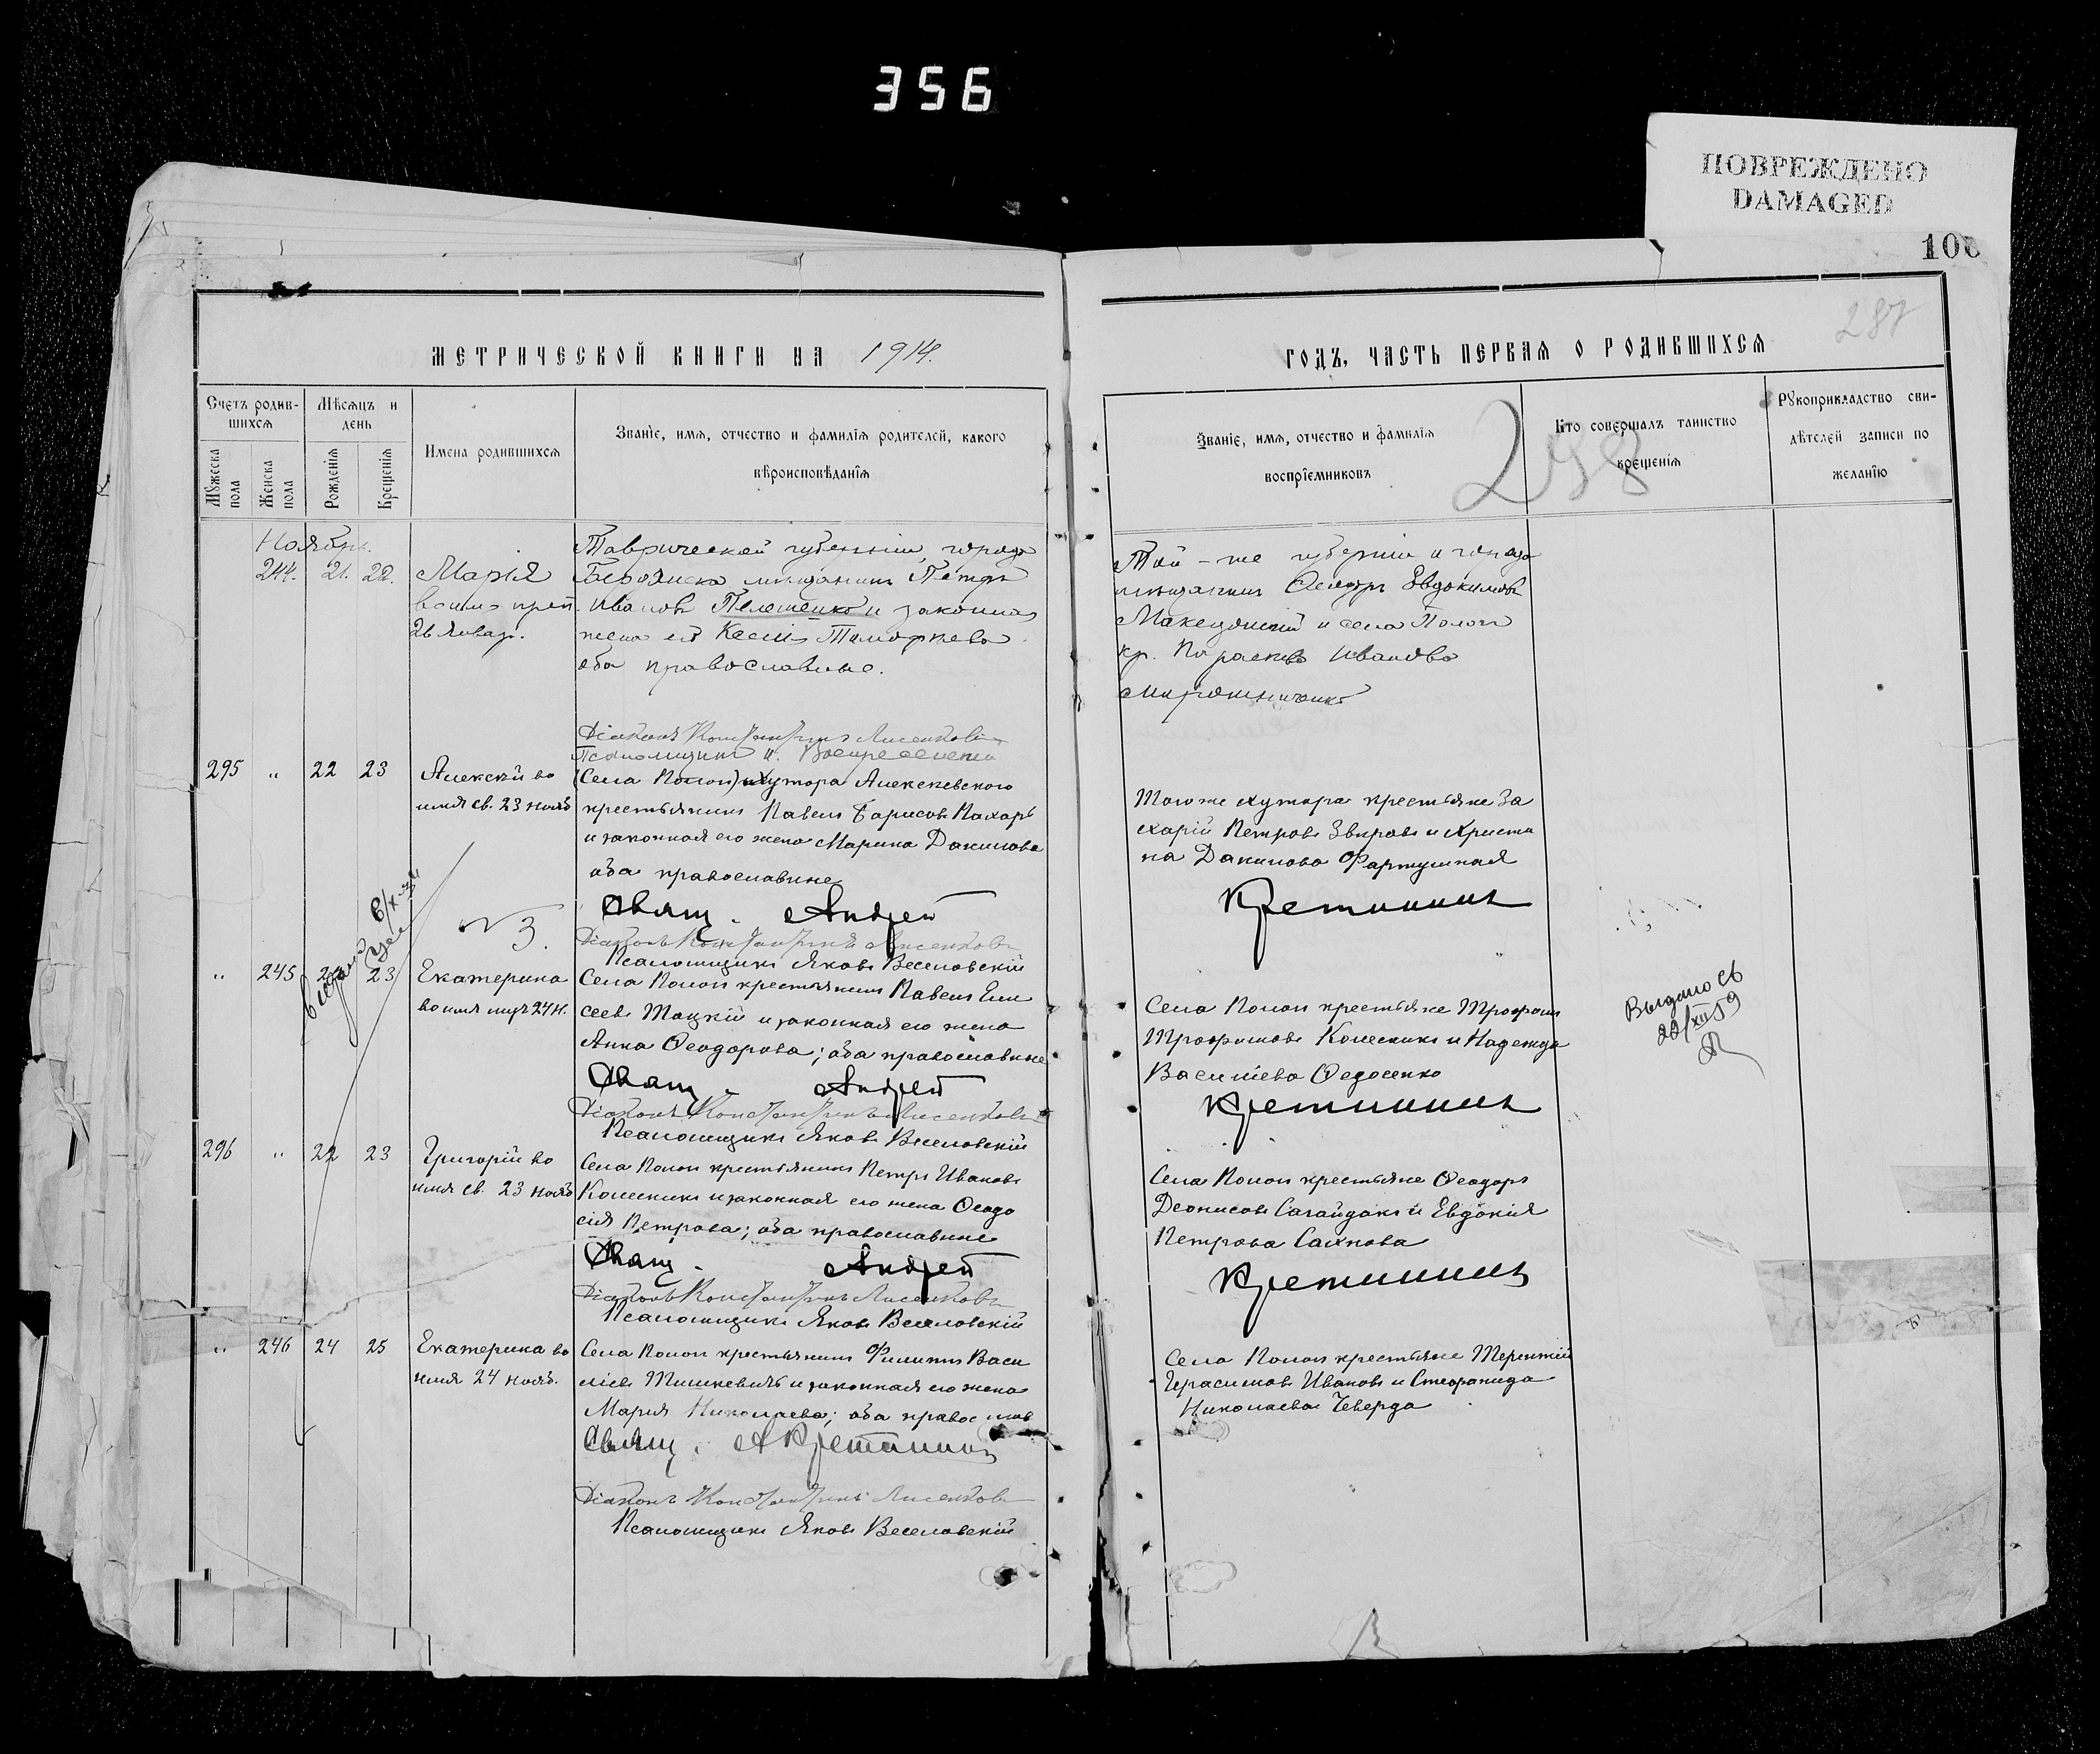 356
ПОВРЕЖДЕНО
DAMAGED
100
287
МЕТРИЧЕСКОЙ КНИГИ НА 1914.
ГОДЪ, ЧАСТЬ ПЕРВАЯ О РОДИВШИХСЯ
298
Счетъ родив-
шихся
Мѣсяцъ и
день
Мужеска
пола
Женска
пола
Рожденія
Крещенія
Имена родившихся
Званіе, имя, отчество и фамилія родителей, какого
вѣроисповѣданія
Званіе, имя, отчество и фамилія
воспріемниковъ
Кто совершалъ таинство
крещенія
Рукоприкладство сви-
дѣтелей записи по
желанію
Ноябрь.
244. 21. 22.
Марія
во имя преп.
26 январ.
Таврической губерніи, города
Бердянска мѣщанинъ Петръ
Ивановъ и законная
жена его Ксенія Тимофѣева
оба православные.
Діаконъ Константинъ Лисенковъ
Псаломщикъ и.
Той-же губерніи и города
мѣщанинъ Евдокимовъ
Македонскій и села Пологи
кр. Параскева Иванова
Мирошниченко
295 " 22 23
Алексѣй во
имя св. 23 нояб
(Села Пологи) хутора Алексѣевскаго
крестьянинъ Павелъ Борисовъ Пахарь
и законная его жена Марина Данилова
оба православные
Свящ. Андрей
Кретининъ
Діаконъ Константинъ Лисенковъ
Псаломщикъ Яковъ Веселовскій
Того же хутора крестьяне За
харій Петровъ Звѣревъ и Христи
на Данилова Фартушная
№ 3.
" 245 22 23
Екатерина
во имя муч 24 н.
Села Пологи крестьянинъ Павелъ Ели
сеевъ Тоцкій и законная его жена
Анна Ѳеодорова; оба православные
Свящ. Андрей
Кретининъ
Діаконъ Константинъ Лисенковъ
Псаломщикъ Яковъ Веселовскій
Села Пологи крестьяне Трофимъ
Трофимовъ Колесникъ и Надежда
Васильева Ѳедосенко
Выдано св
22/XII 59
296 " 22 23
Григорій во
имя св. 23 нояб
Села Пологи крестьянинъ Петръ Ивановъ
Колесникъ и законная его жена Ѳеодо
сія Петрова; оба православные
Свящ. Андрей
Кретининъ
Діаконъ Константинъ Лисенковъ
Псаломщикъ Яковъ Веселовскій
Села Пологи крестьяне Ѳеодоръ
Деонисовъ Сагайдакъ и Евдокія
Петрова Сахнова
" 246 24 25
Екатерина во
имя 24 нояб.
Села Пологи крестьянинъ Филиппъ Васи
ліевъ Тишкевичъ и законная его жена
Марія Николаева; оба православ
Свящ. А Кретининъ
Діаконъ Константинъ Лисенковъ
Псаломщикъ Яковъ Веселовскій
Села Пологи крестьяне Терентій
Герасимовъ Ивановъ и Стефанида
Николаева Чеверда